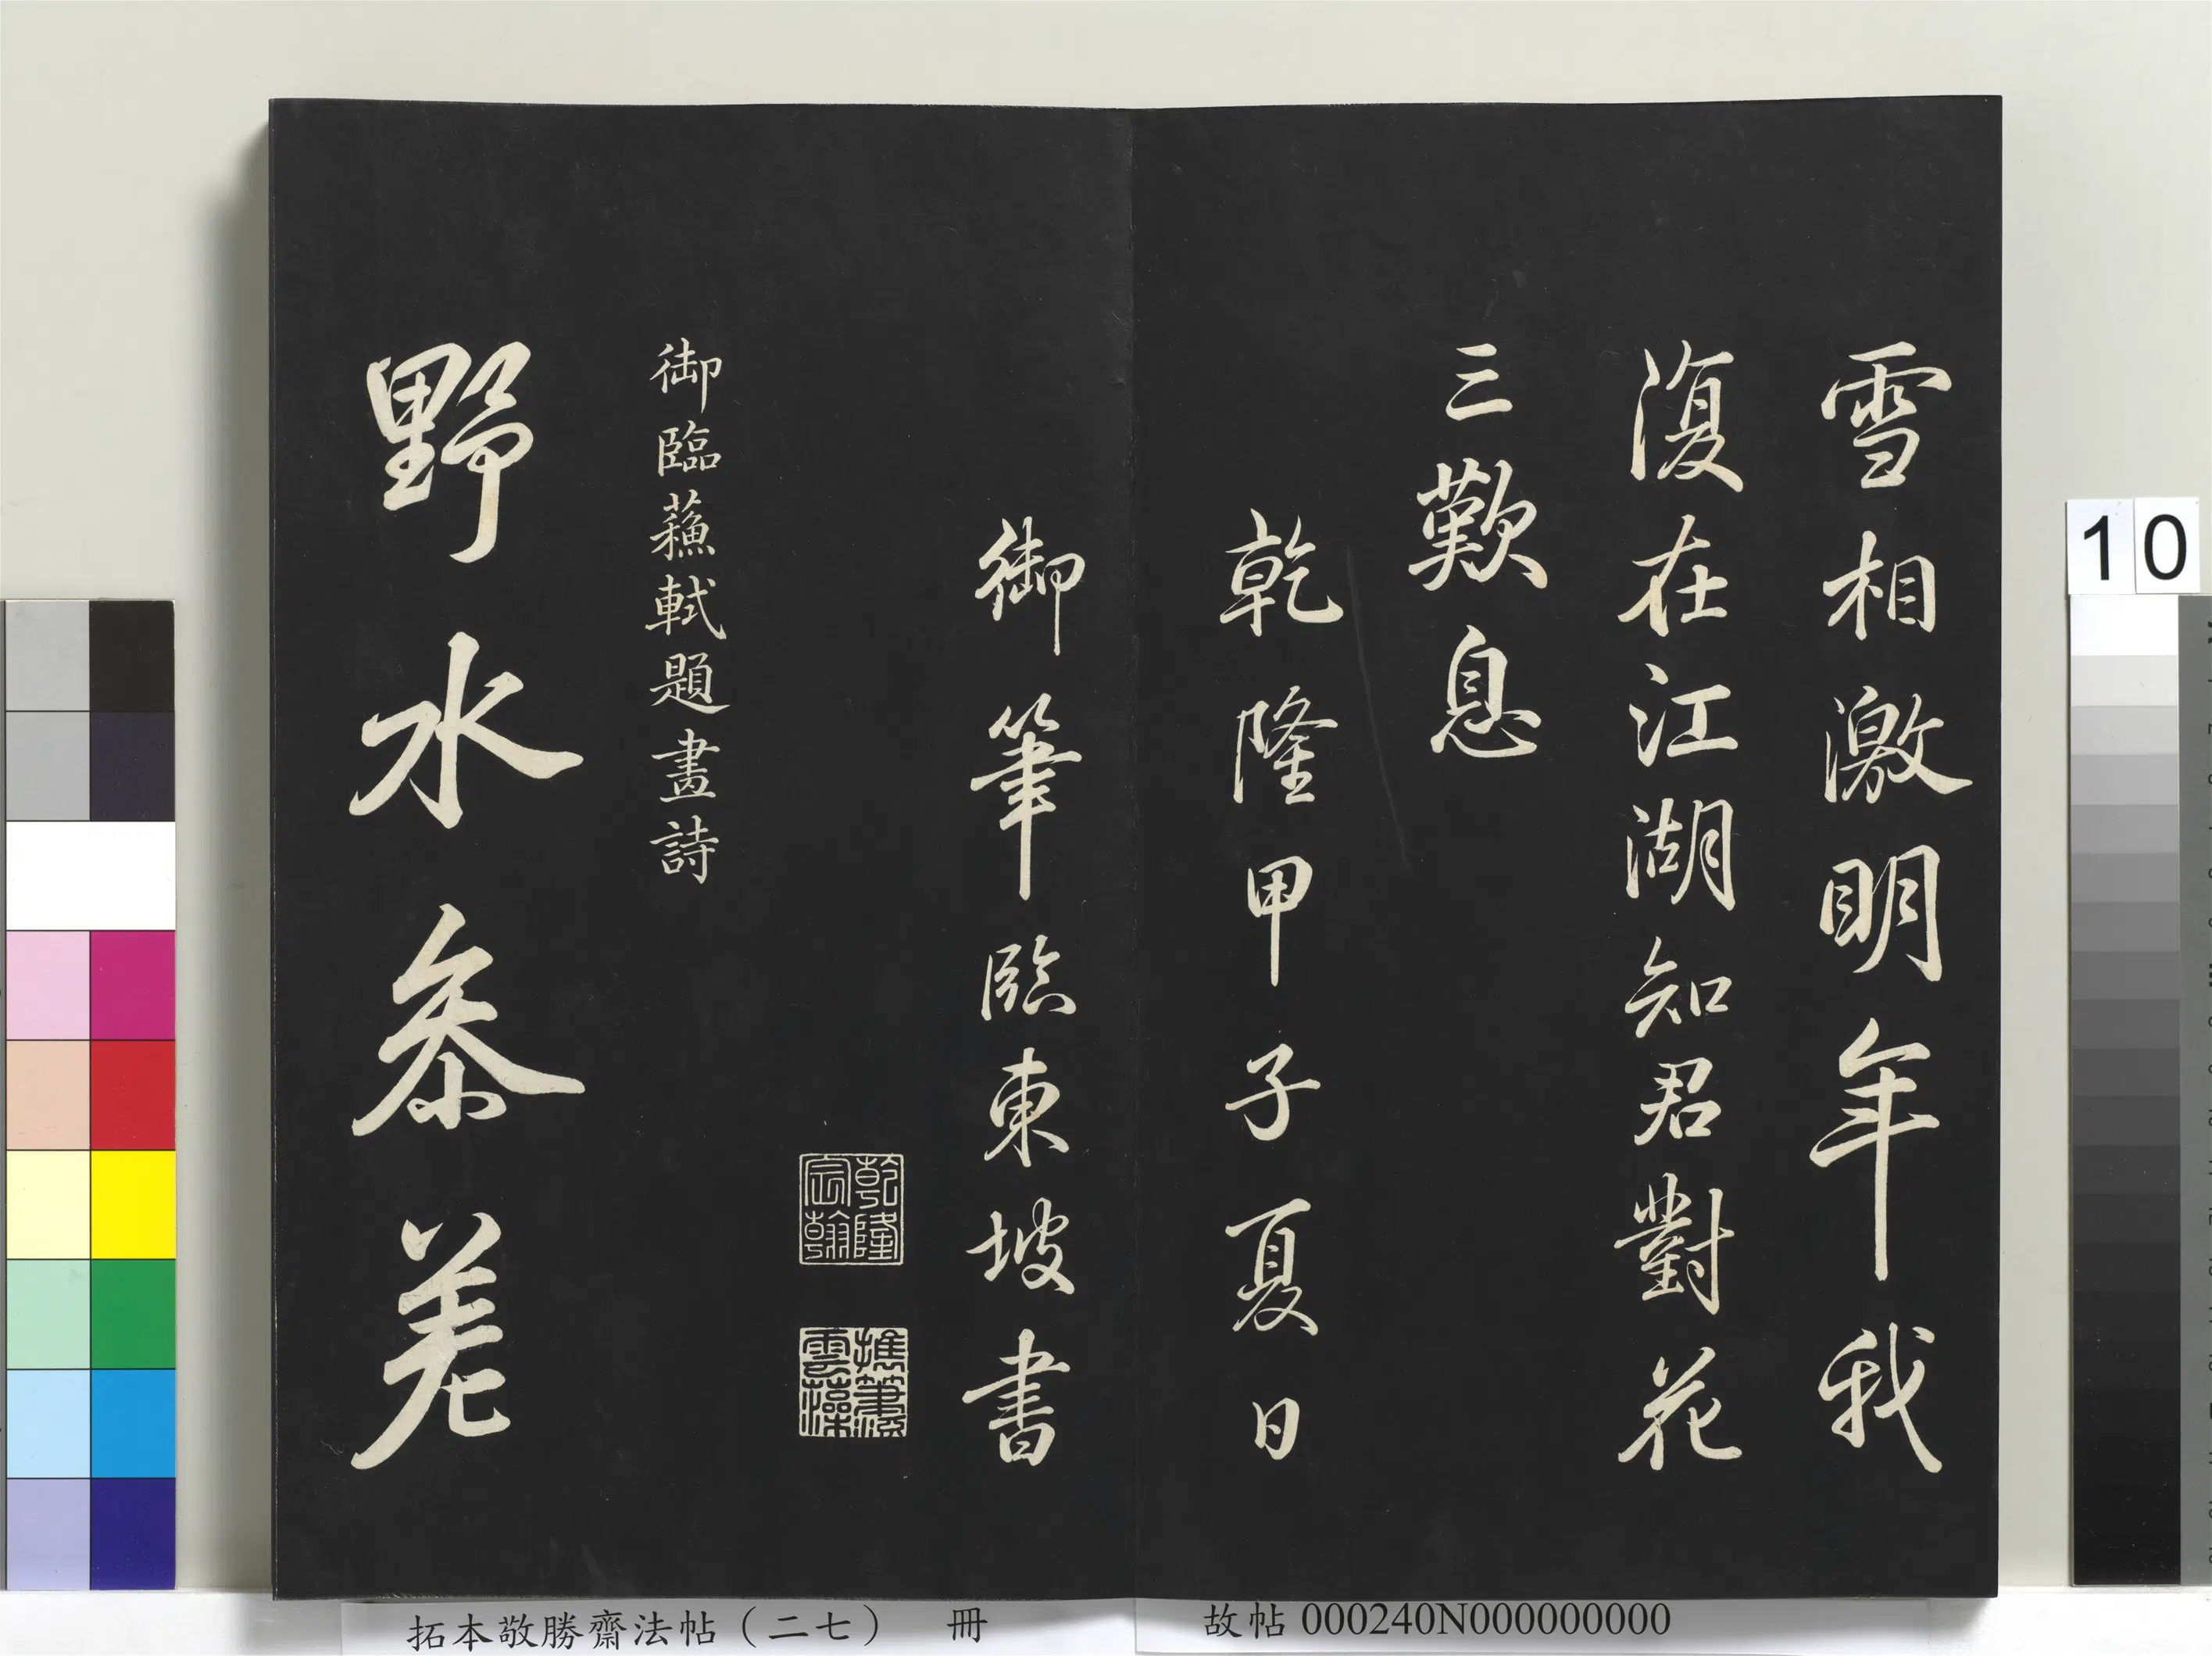 雪相激明年我
復在江湖知君對花
三歎息
乾隆甲子夏日
御筆臨東坡書
乾隆
宸翰
摛筆
雲藻
御臨蘓軾題畫詩
野水叅差
10
拓本敬勝齋法帖（二七） 冊
故帖 000240N000000000